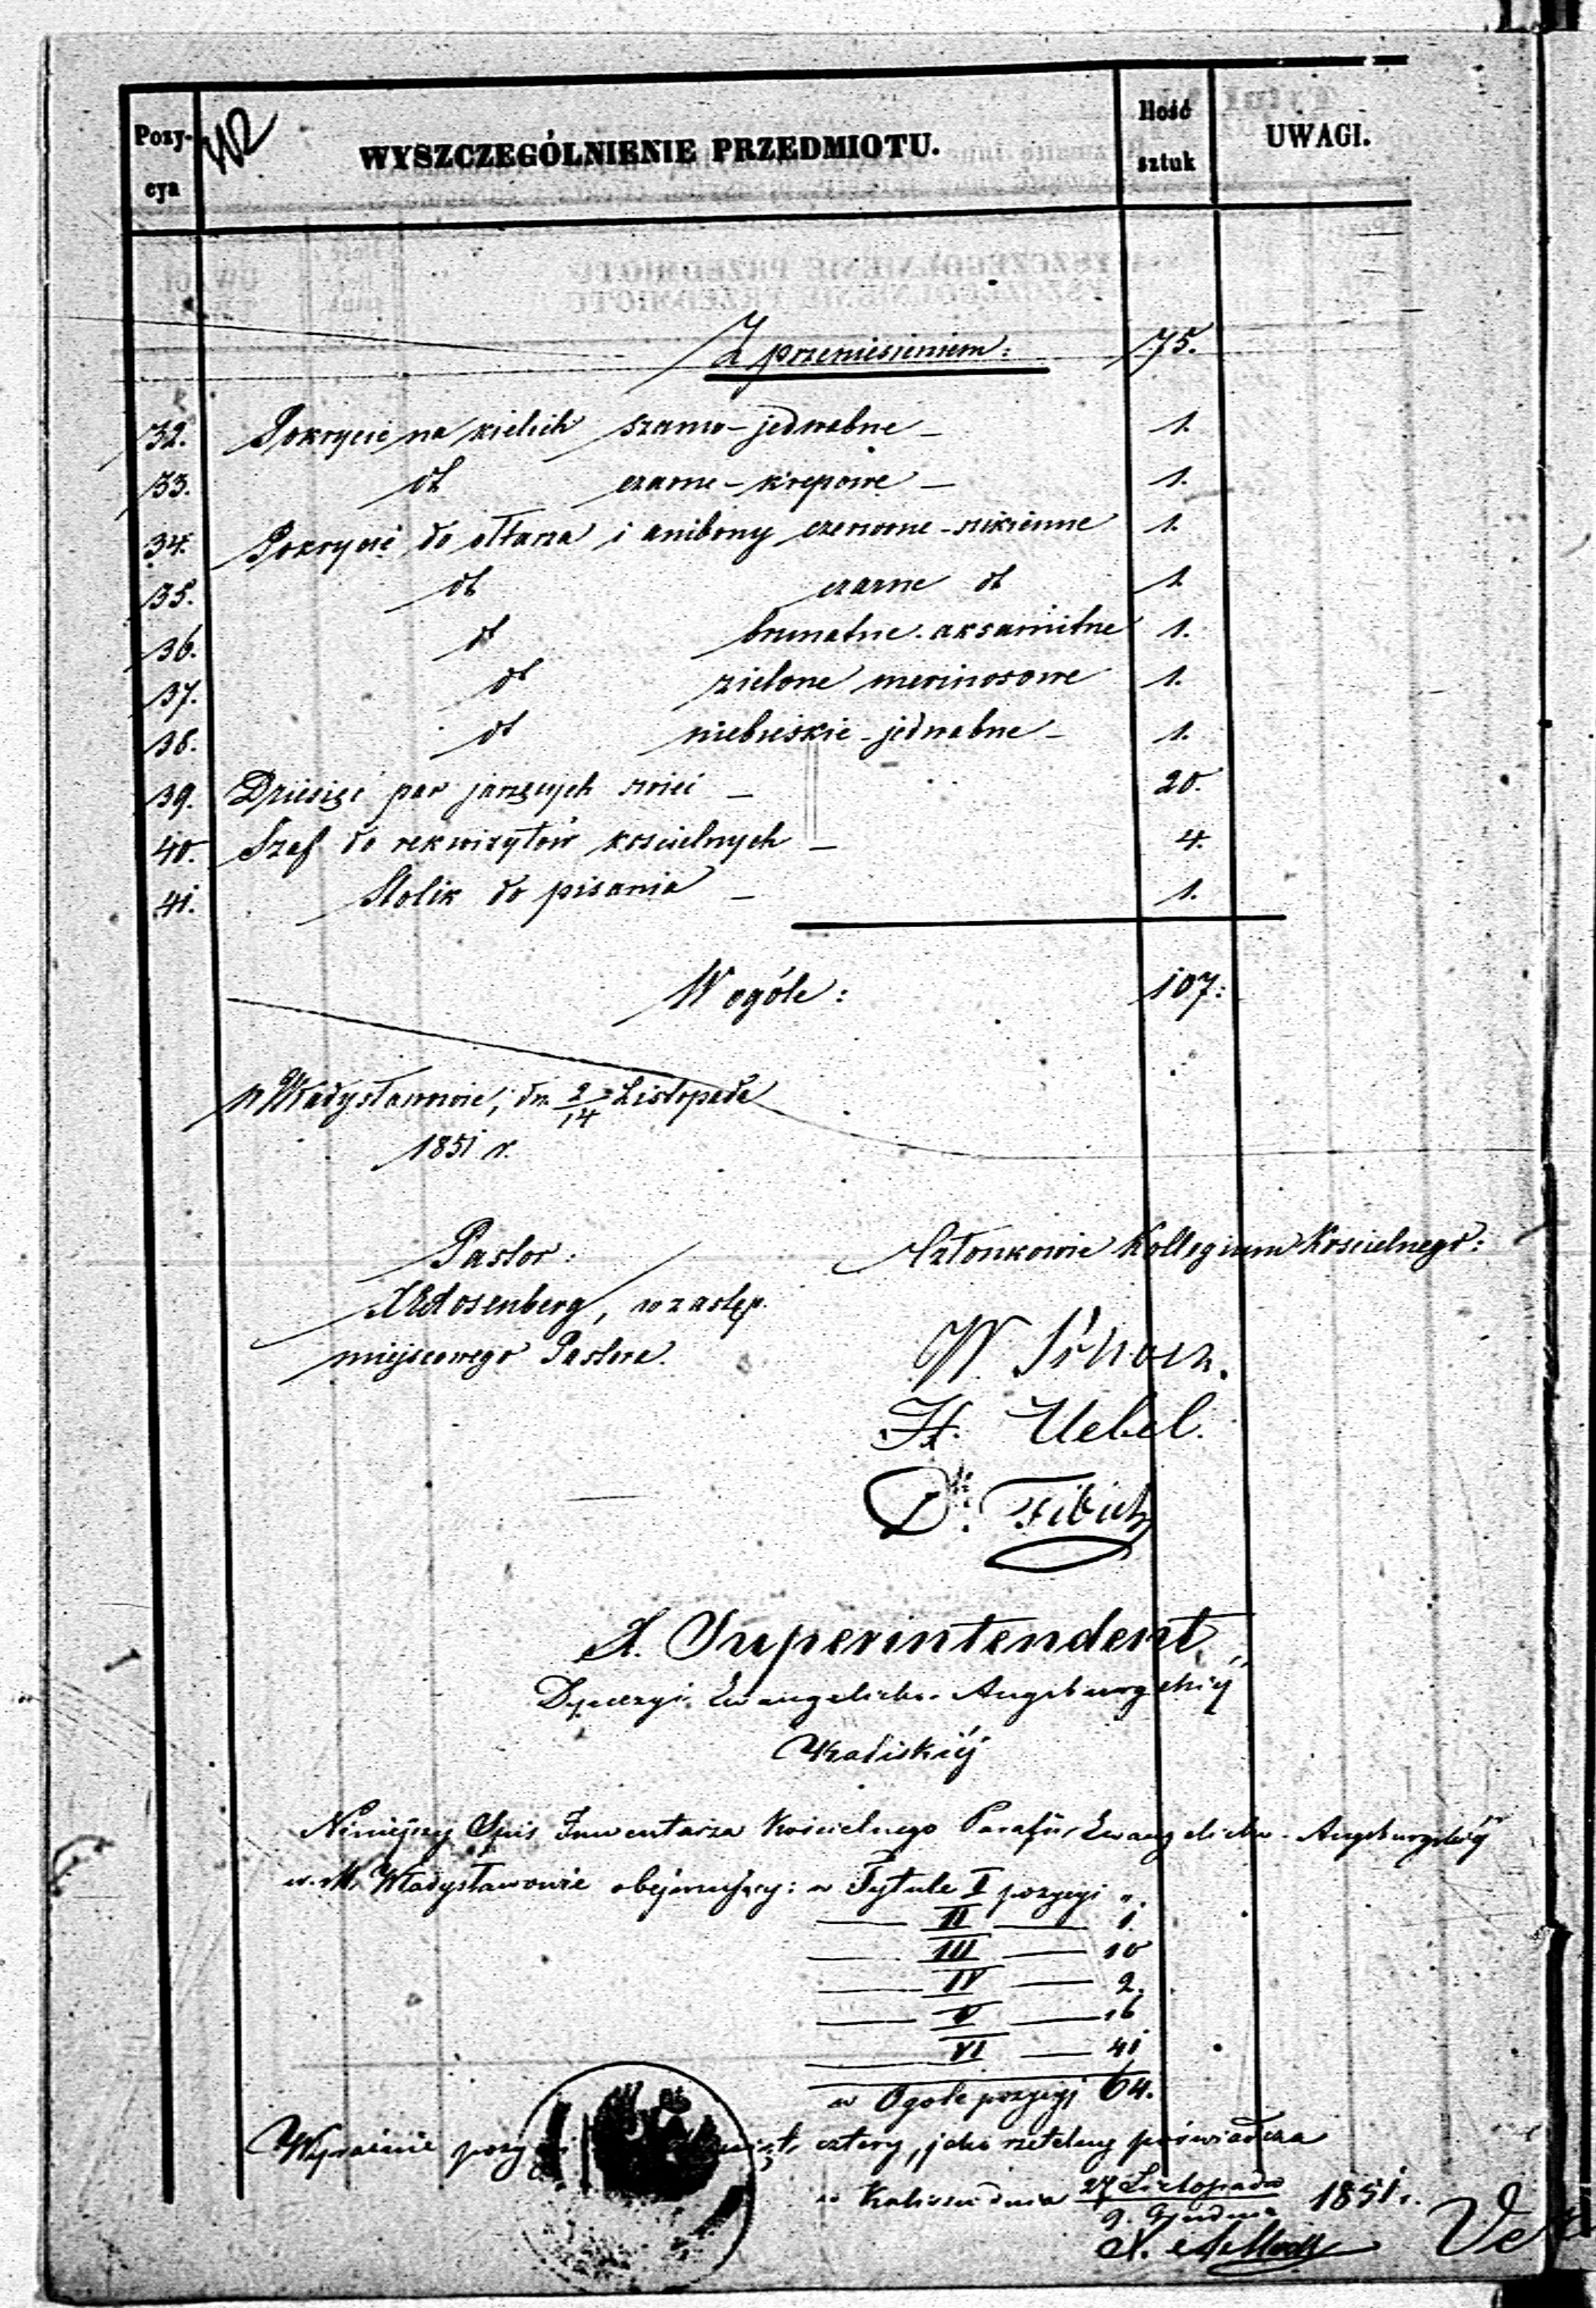 Pozycya WYSZCZEGÓLNIENIE PRZEDMIOTU. Ilość sztuk UWAGI.
Z przeniesieniem: 75.
32. Pokrycie na kielich szamo-jedwabne – 1.
33. dt czarne-krepowe – 1.
34. Pokrycie do ołtarza i ambony czerwone-sukienne 1.
35. dt czarne dt 1
36. dt brunatne-aksamitne 1.
37. dt zielone merinosowe 1.
38. dt niebieskie-jedwabne – 1.
39. Dziesięć par jarzących świec – 20.
40. Szaf do rekwizytów kościelnych – 4.
41. Stolik do pisania – 1.
W ogóle: 107:
w Władysławowie, dn. 2/14 Listopada
1851 r.
Pastor: Członkowie Kollegium Kościelnego:
Rosenberg, w zastęp.
miejscowego Pastora.
W.
H. Uebel.
D. Fibich
X. Superintendent
Dyecezyi Ewangelicko-Augsburgskiej
Kaliskiej
Niniejszy Spis Inwentarza Kościelnego Parafii Ewangelicko-Augsburgskiej
w M. Władysławowie obejmujący: w Tytule I pozycyi „
— II — 1
— III — 10
— IV — 2.
— V — 16
— VI — 41
w Ogole pozycyj 64.
Wyraźnie cztery, jako rzetelny poświadcza
w Kaliszu dnia 27 Listopada / 9. Grudnia 1851 r.